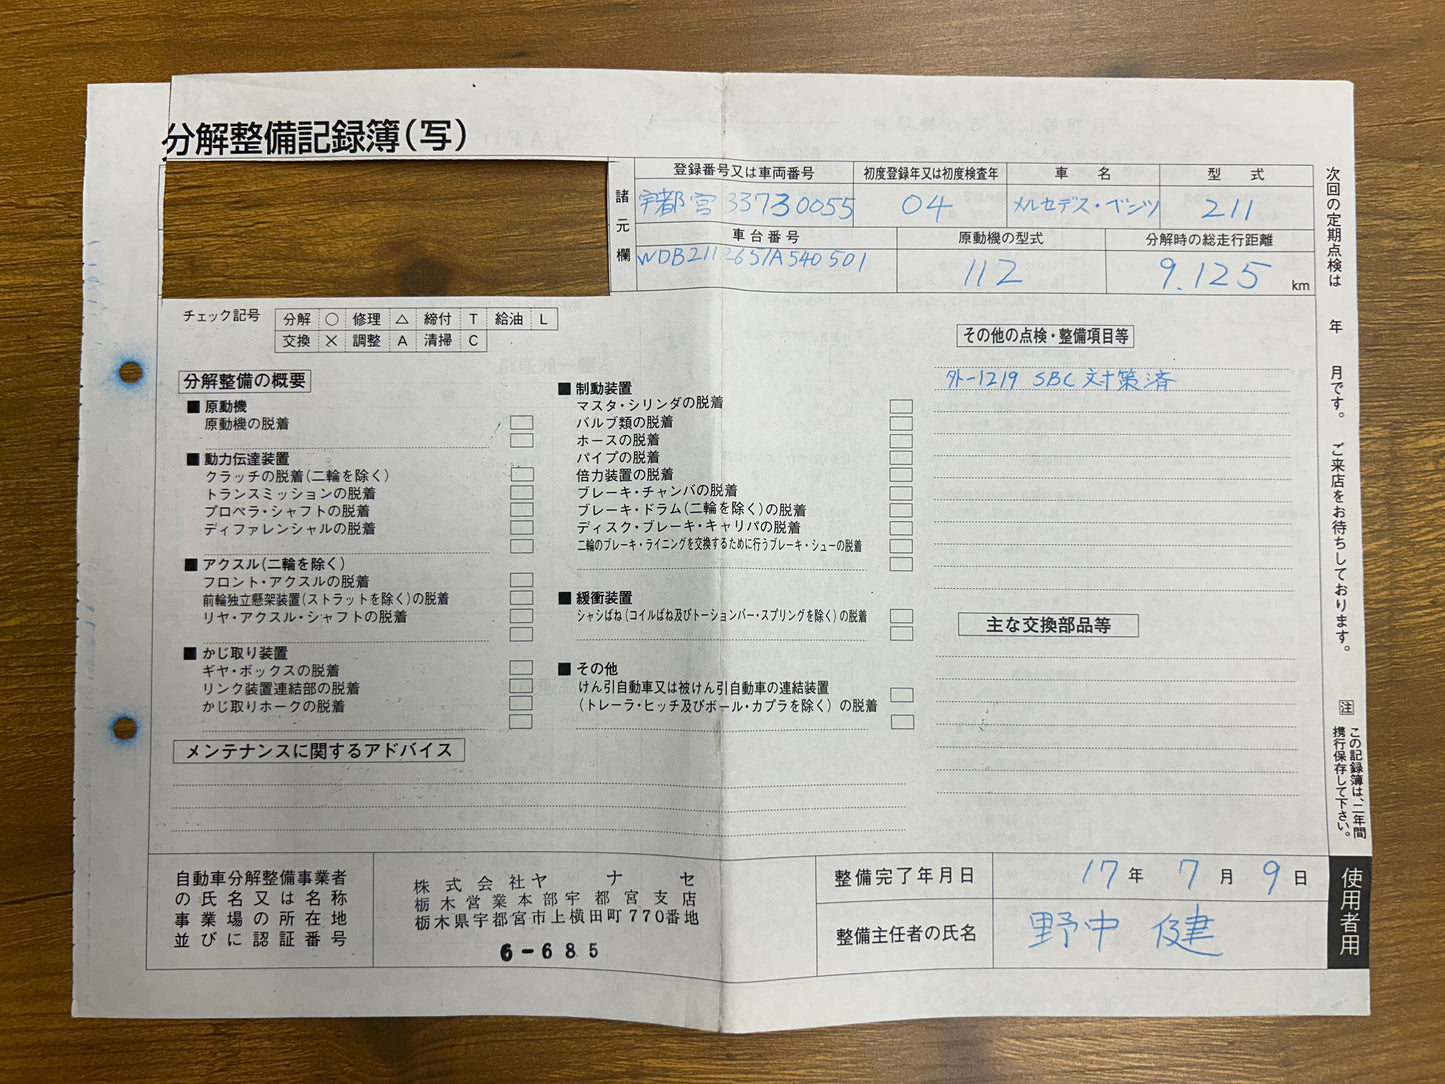 分解整備記録簿(写)
諸元欄
登録番号又は車両番号
初度登録年又は初度検査年
車名
型式
宇都宮 337 30055
04
メルセデス・ベンツ
211
車台番号
原動機の型式
分解時の総走行距離
WDB2112651A540501
112
9.125 km
チェック記号
分解 ○ 修理 △ 締付 T 給油 L
交換 × 調整 A 清掃 C
分解整備の概要
■ 原動機
原動機の脱着
■ 動力伝達装置
クラッチの脱着(二輪を除く)
トランスミッションの脱着
プロペラ・シャフトの脱着
ディファレンシャルの脱着
■ アクスル(二輪を除く)
フロント・アクスルの脱着
前輪独立懸架装置(ストラットを除く)の脱着
リヤ・アクスル・シャフトの脱着
■ かじ取り装置
ギヤ・ボックスの脱着
リンク装置連結部の脱着
かじ取りホークの脱着
■ 制動装置
マスタ・シリンダの脱着
バルブ類の脱着
ホースの脱着
パイプの脱着
倍力装置の脱着
ブレーキ・チャンバの脱着
ブレーキ・ドラム(二輪を除く)の脱着
ディスク・ブレーキ・キャリパの脱着
二輪のブレーキ・ライニングを交換するために行うブレーキ・シューの脱着
■ 緩衝装置
シャシばね(コイルばね及びトーションバー・スプリングを除く)の脱着
■ その他
けん引自動車又は被けん引自動車の連結装置
(トレーラ・ヒッチ及びボール・カプラを除く)の脱着
その他の点検・整備項目等
外-1219 SBC 対策済
主な交換部品等
メンテナンスに関するアドバイス
自動車分解整備事業者
の氏名又は名称
事業場の所在地
並びに認証番号
株式会社ヤナセ
栃木営業本部宇都宮支店
栃木県宇都宮市上横田町770番地
6-685
整備完了年月日
17年 7月 9日
整備主任者の氏名
野中 健
次回の定期点検は 年 月です。 ご来店をお待ちしております。
注 この記録簿は、二年間
携行保存して下さい。
使用者用